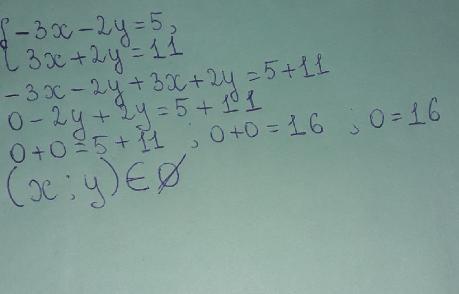 { -3x-2y=5,
{ 3x+2y=11
-3x-2y+3x+2y=5+11
0-2y+2y=5+11
0+0=5+11 ; 0+0=16 ; 0=16
(x;y)∈∅